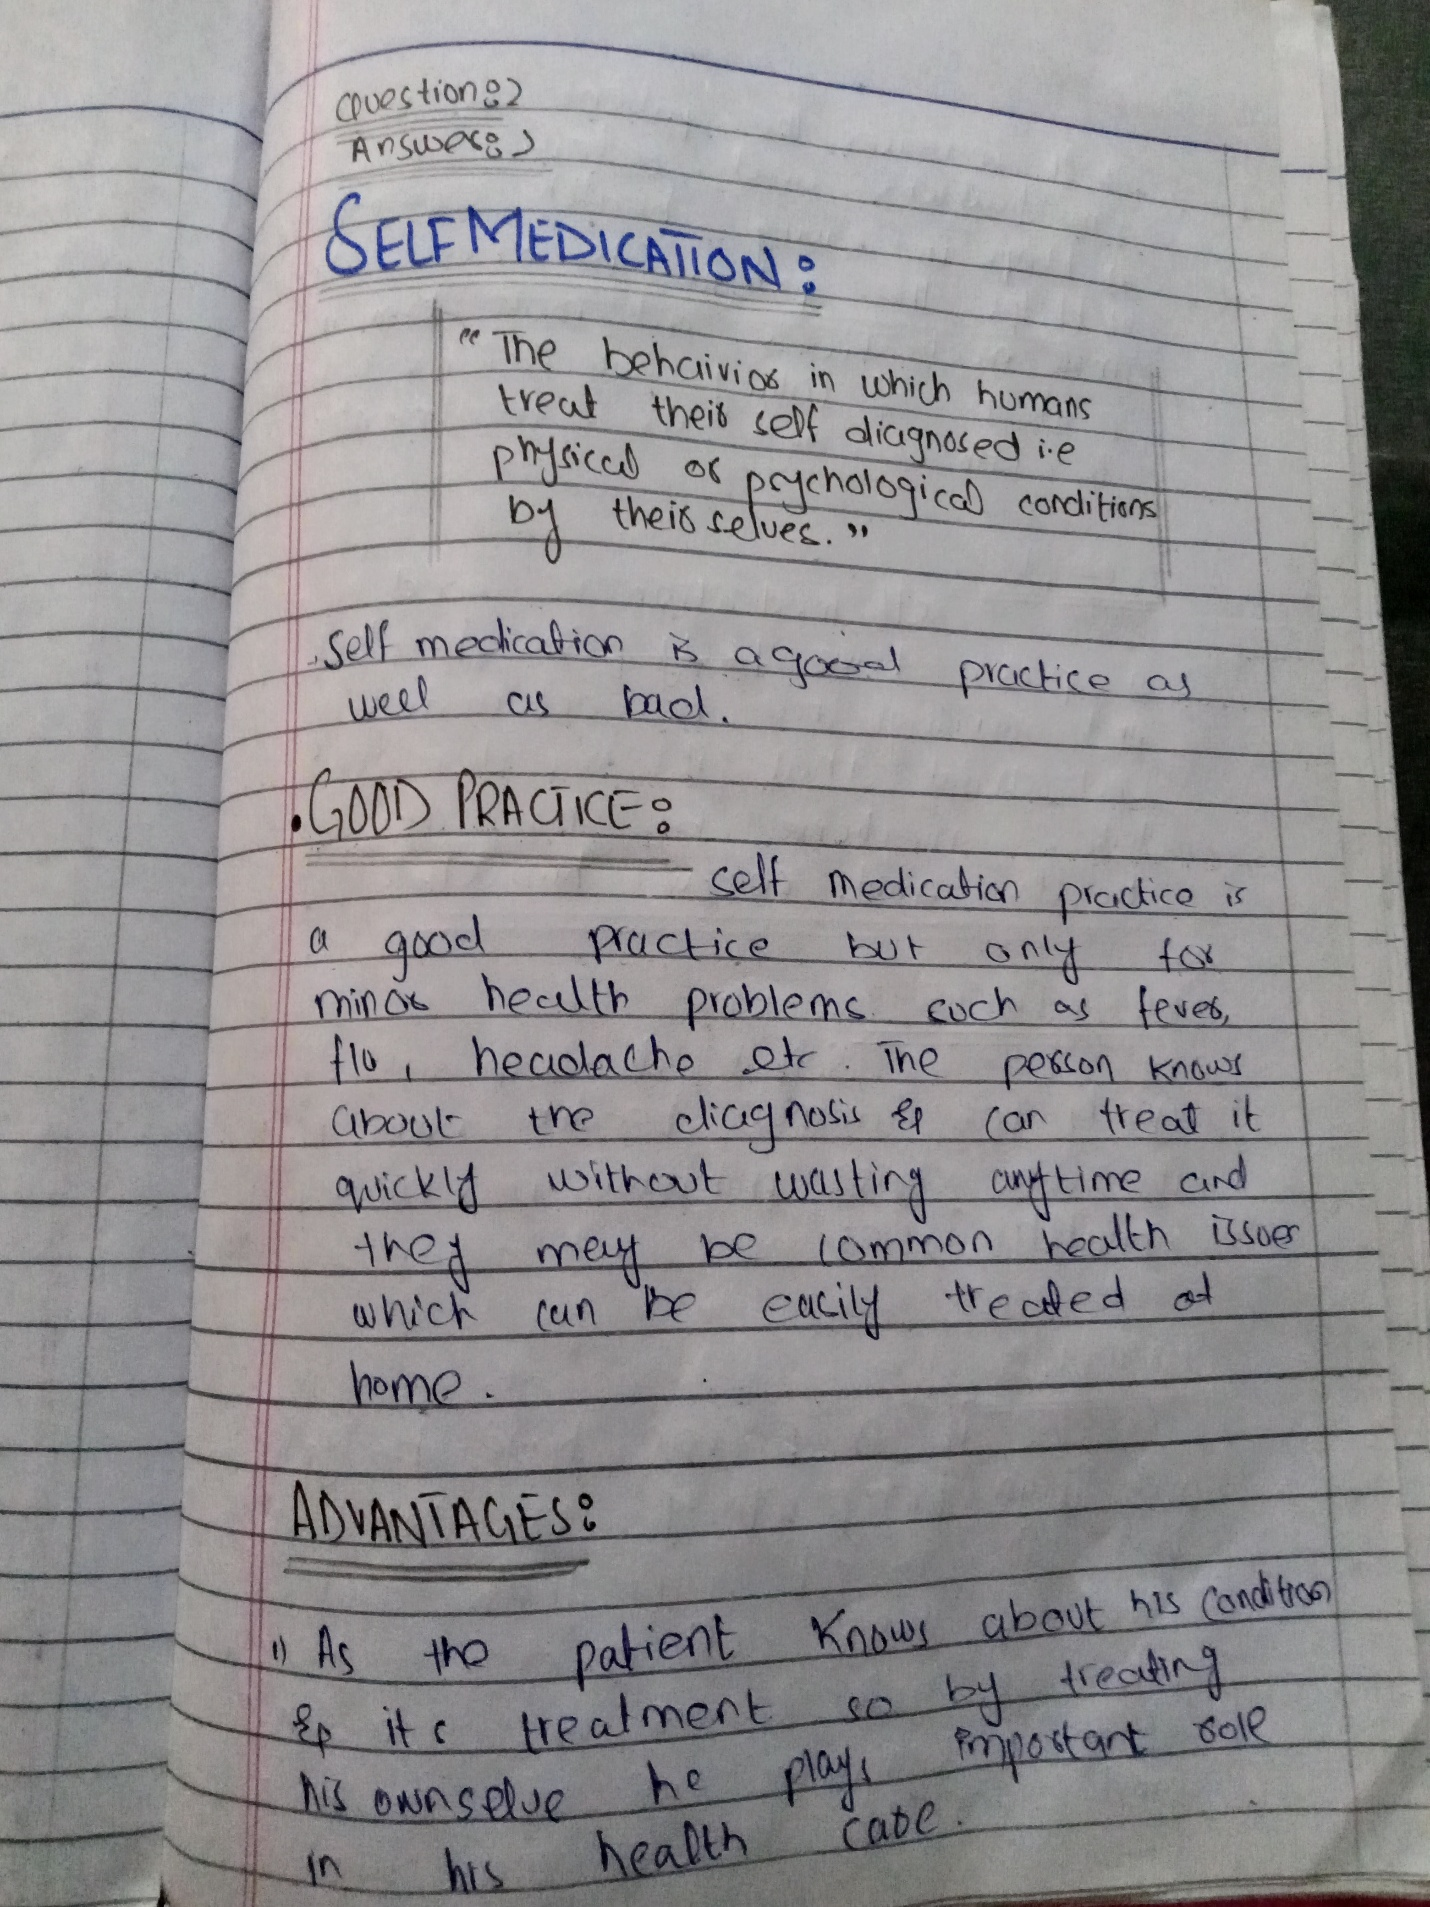 Question:2
Answer:)
SELF MEDICATION:
"The behaivior in which humans
treat their self diagnosed i.e
physical or psychological conditions
by their selves."
Self medication is a good practice as
well as bad.
. GOOD PRACTICE:
self medication practice is
a good practice but only for
minor health problems such as fever,
flu, headache etc. The person knows
about the diagnosis & can treat it
quickly without wasting anytime and
they may be common health issues
which can be easily treated at
home.
ADVANTAGES:
1) As the patient knows about his condition
& its treatment so by treating
his ownselve he plays important role
in his health care.